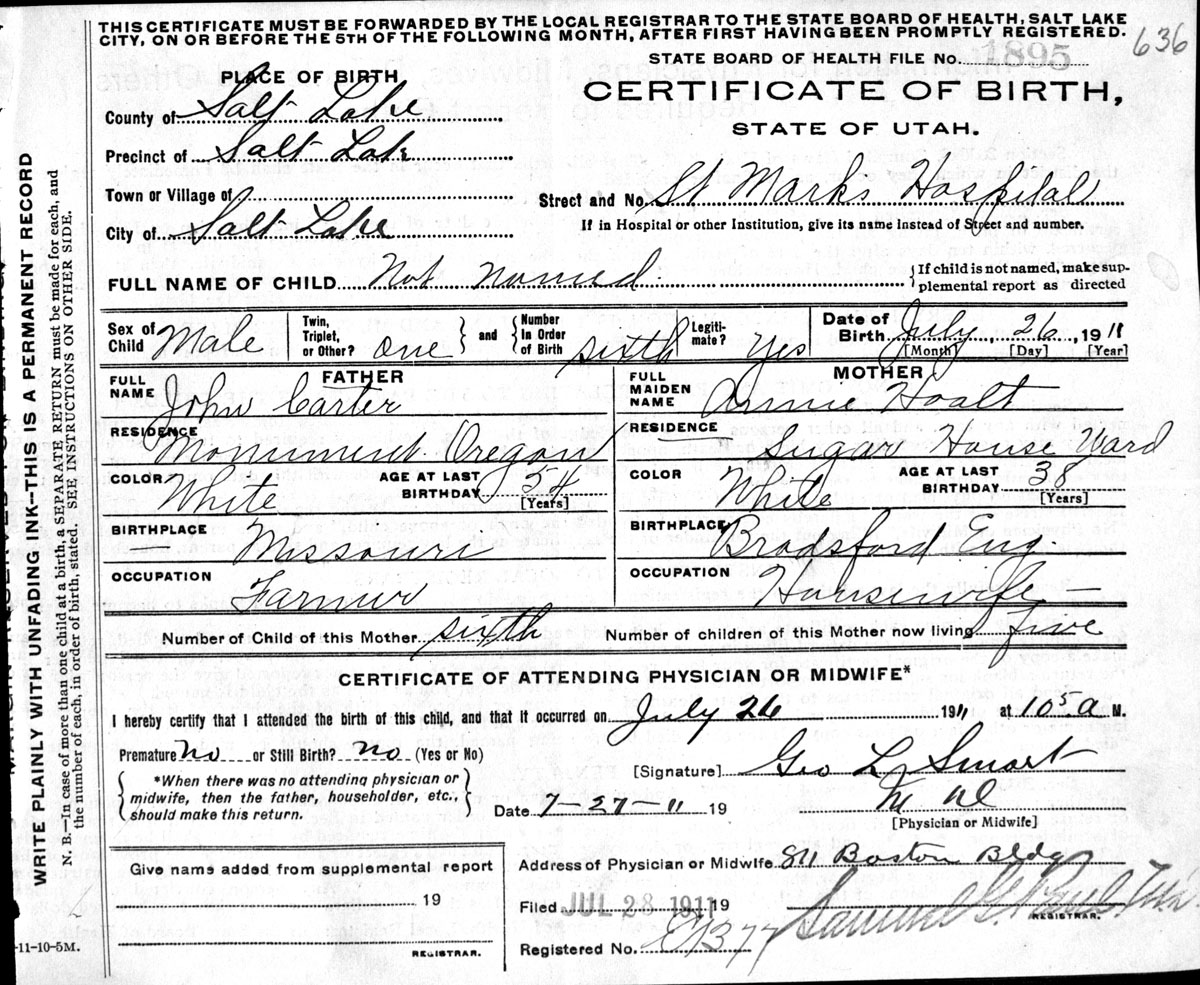 THIS CERTIFICATE MUST BE FORWARDED BY THE LOCAL REGISTRAR TO THE STATE BOARD OF HEALTH, SALT LAKE
CITY, ON OR BEFORE THE 5TH OF THE FOLLOWING MONTH, AFTER FIRST HAVING BEEN PROMPTLY REGISTERED.
636
STATE BOARD OF HEALTH FILE No. 1895
PLACE OF BIRTH
CERTIFICATE OF BIRTH,
STATE OF UTAH.
County of Salt Lake
Precinct of Salt Lake
Town or Village of
Street and No. St Marks Hospital
City of Salt Lake
If in Hospital or other Institution, give its name instead of Street and number.
FULL NAME OF CHILD Not named
If child is not named, make sup-
plemental report as directed
Sex of Child Male
Twin, Triplet, or Other? one and Number in Order of Birth sixth
Legiti- mate? Yes
Date of Birth July 26, 1911
[Month] [Day] [Year]
FATHER
MOTHER
FULL NAME John Carter
FULL MAIDEN NAME Annie Hoalt
RESIDENCE Monument Oregon
RESIDENCE Sugar House Ward
COLOR White AGE AT LAST BIRTHDAY 54 [Years]
COLOR White AGE AT LAST BIRTHDAY 38 [Years]
BIRTHPLACE Missouri
BIRTHPLACE Bradsford Eng.
OCCUPATION Farmer
OCCUPATION Housewife
Number of Child of this Mother sixth Number of children of this Mother now living five
CERTIFICATE OF ATTENDING PHYSICIAN OR MIDWIFE*
I hereby certify that I attended the birth of this child, and that it occurred on July 26 1911 at 10 5 a M.
Premature no or Still Birth? no (Yes or No)
[Signature] Geo L Smart
*When there was no attending physician or
midwife, then the father, householder, etc.,
should make this return.
Date 7-27-11 19
M D
[Physician or Midwife]
Give name added from supplemental report
19
REGISTRAR.
Address of Physician or Midwife 811 Boston Bldg
Filed JUL 28 1911 19
Samuel G. Paul
REGISTRAR.
Registered No. 1377
-11-10-5M.
WRITE PLAINLY WITH UNFADING INK--THIS IS A PERMANENT RECORD
N. B.—In case of more than one child at a birth, a SEPARATE RETURN must be made for each, and
the number of each, in order of birth, stated. SEE INSTRUCTION ON OTHER SIDE.